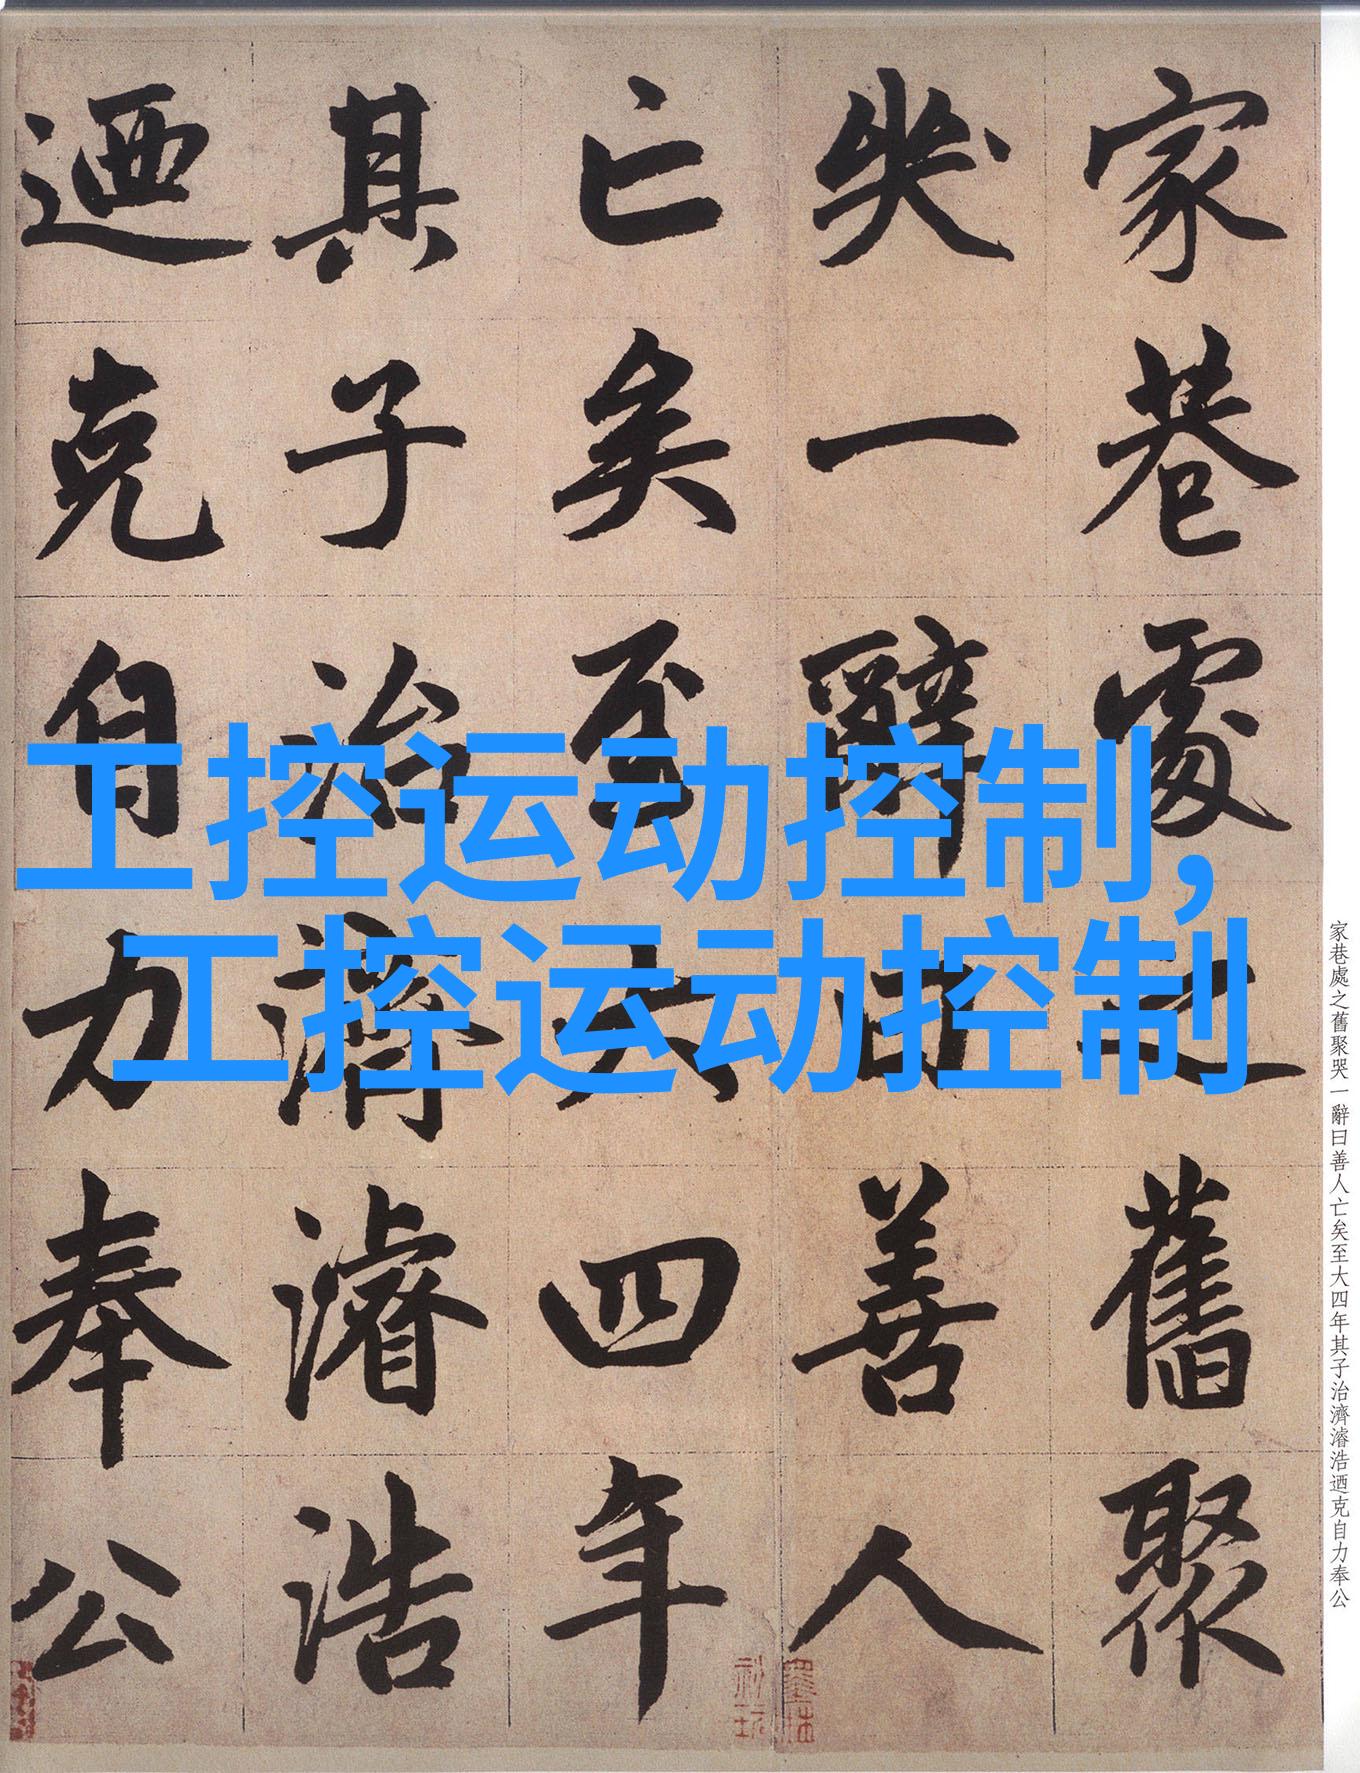 家巷處之舊聚
哭一辭曰善人
亡矣至大四年
其子治濟濬浩
迺克自力奉公
工控运动控制,
工控运动控制
家巷處之舊聚哭一辭曰善人亡矣至大四年其子治濟濬浩迺克自力奉公